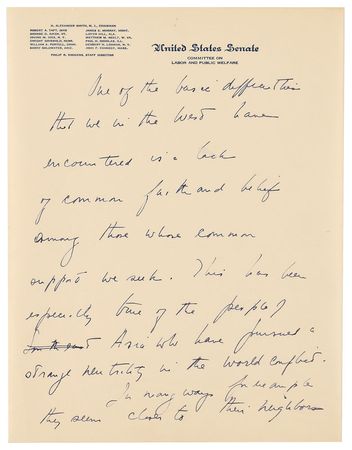 H. ALEXANDER SMITH, N. J., CHAIRMAN
ROBERT A. TAFT, OHIO JAMES E. MURRAY, MONT.
GEORGE D. AIKEN, VT. LISTER HILL, ALA.
IRVING M. IVES, N. Y. MATTHEW M. NEELY, W. VA.
DWIGHT GRISWOLD, NEBR. PAUL H. DOUGLAS, ILL.
WILLIAM A. PURTELL, CONN. HERBERT H. LEHMAN, N. Y.
BARRY GOLDWATER, ARIZ. JOHN F. KENNEDY, MASS.
STAFF DIRECTOR
United States Senate
COMMITTEE ON
LABOR AND PUBLIC WELFARE
One of the basic difficulties
that we in the West have
encountered is a lack
of common faith and belief
among those whose common
support we seek. This has been
especially true of the people of
Asia who have pursued a
strange neutrality in the world conflict.
In many ways for example
they seem closer to their neighbors